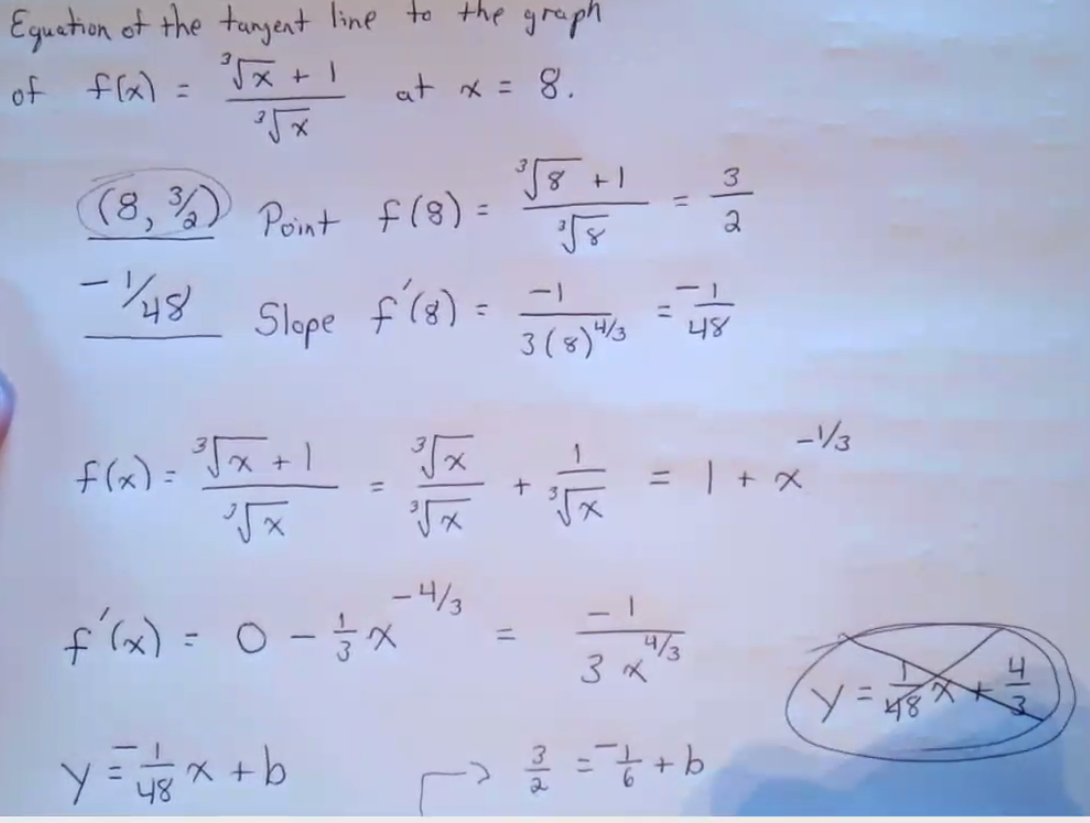 Equation of the tangent line to the graph
of f(x) = (∛x + 1)/∛x at x = 8.
(8, 3/2) Point f(8) = (∛8 + 1)/∛8 = 3/2
-1/48 Slope f'(8) = -1/(3(8)^(4/3)) = -1/48
f(x) = (∛x + 1)/∛x = ∛x/∛x + 1/∛x = 1 + x^(-1/3)
f'(x) = 0 - 1/3 x^(-4/3) = -1/(3x^(4/3))
y = 1/48 x + 4/3
y = -1/48 x + b → 3/2 = -1/6 + b